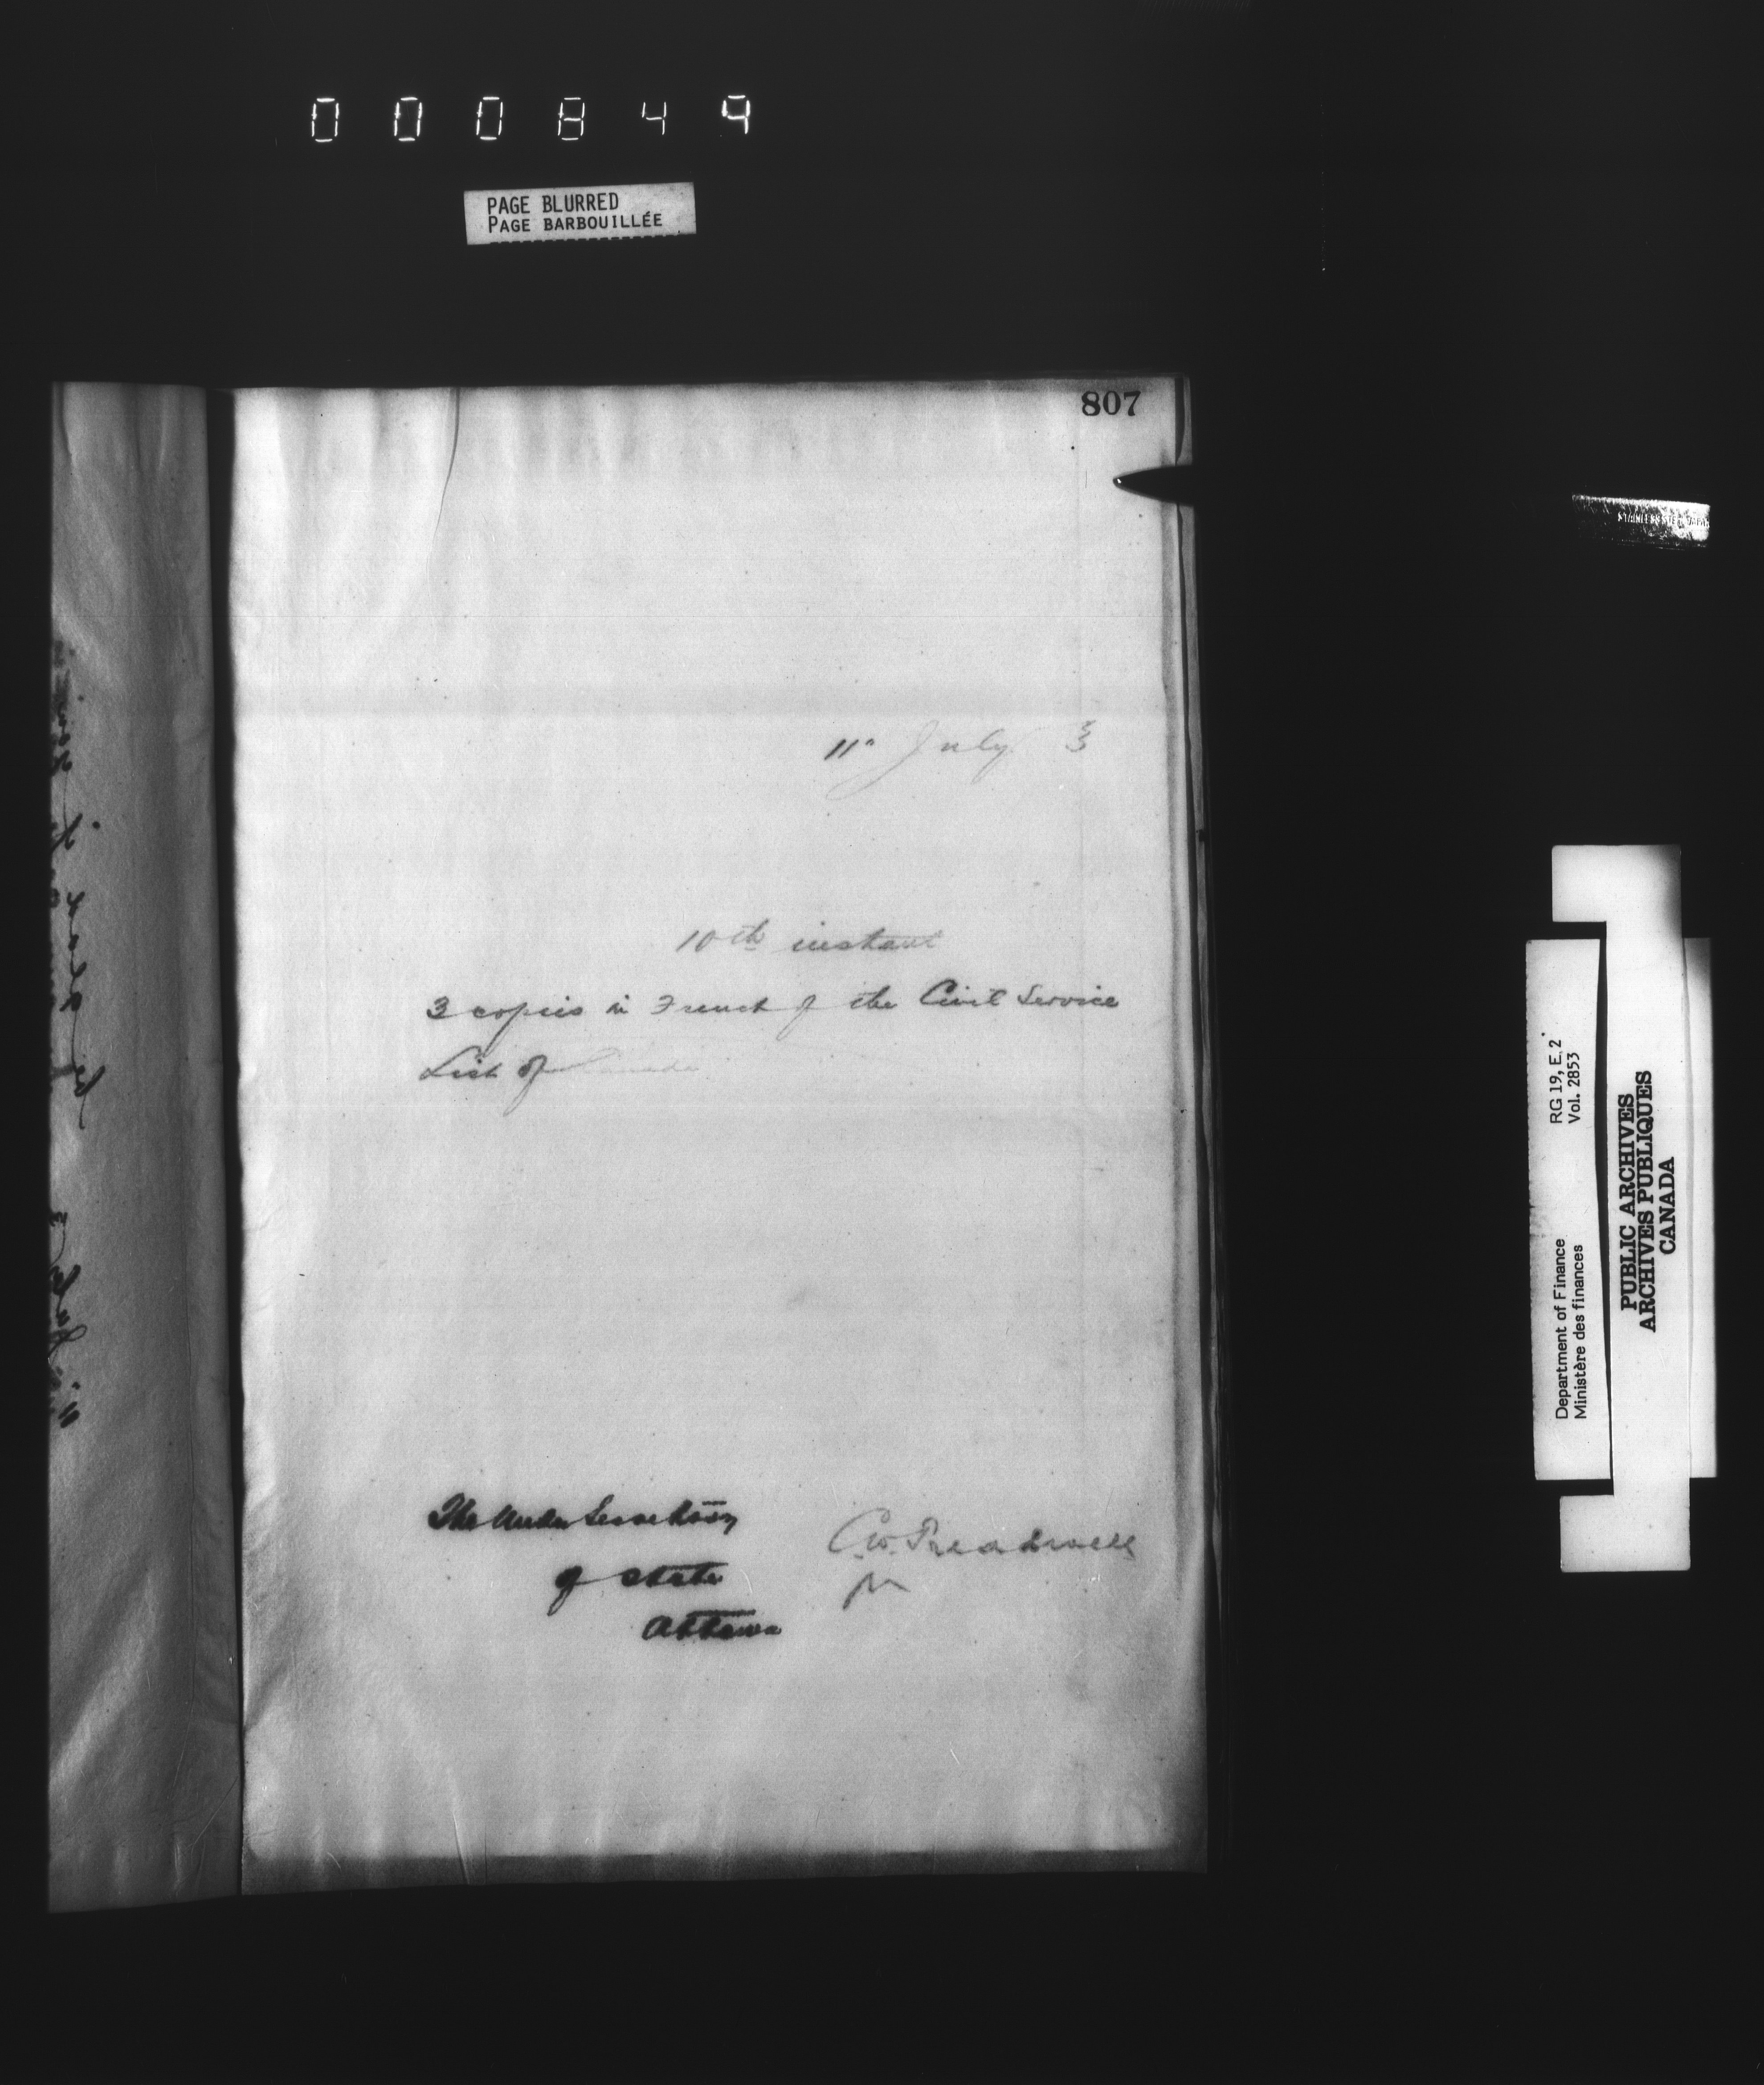 000849
PAGE BLURRED
PAGE BARBOUILLÉE
807
11" July 3
10th instant
3 copies in French of the Civil Service
List of Canada
The Under Secretary
of State
Ottawa
C.W. Treadwell
RG 19, E.2
Vol. 2853
Department of Finance
Ministère des finances
PUBLIC ARCHIVES
ARCHIVES PUBLIQUES
CANADA